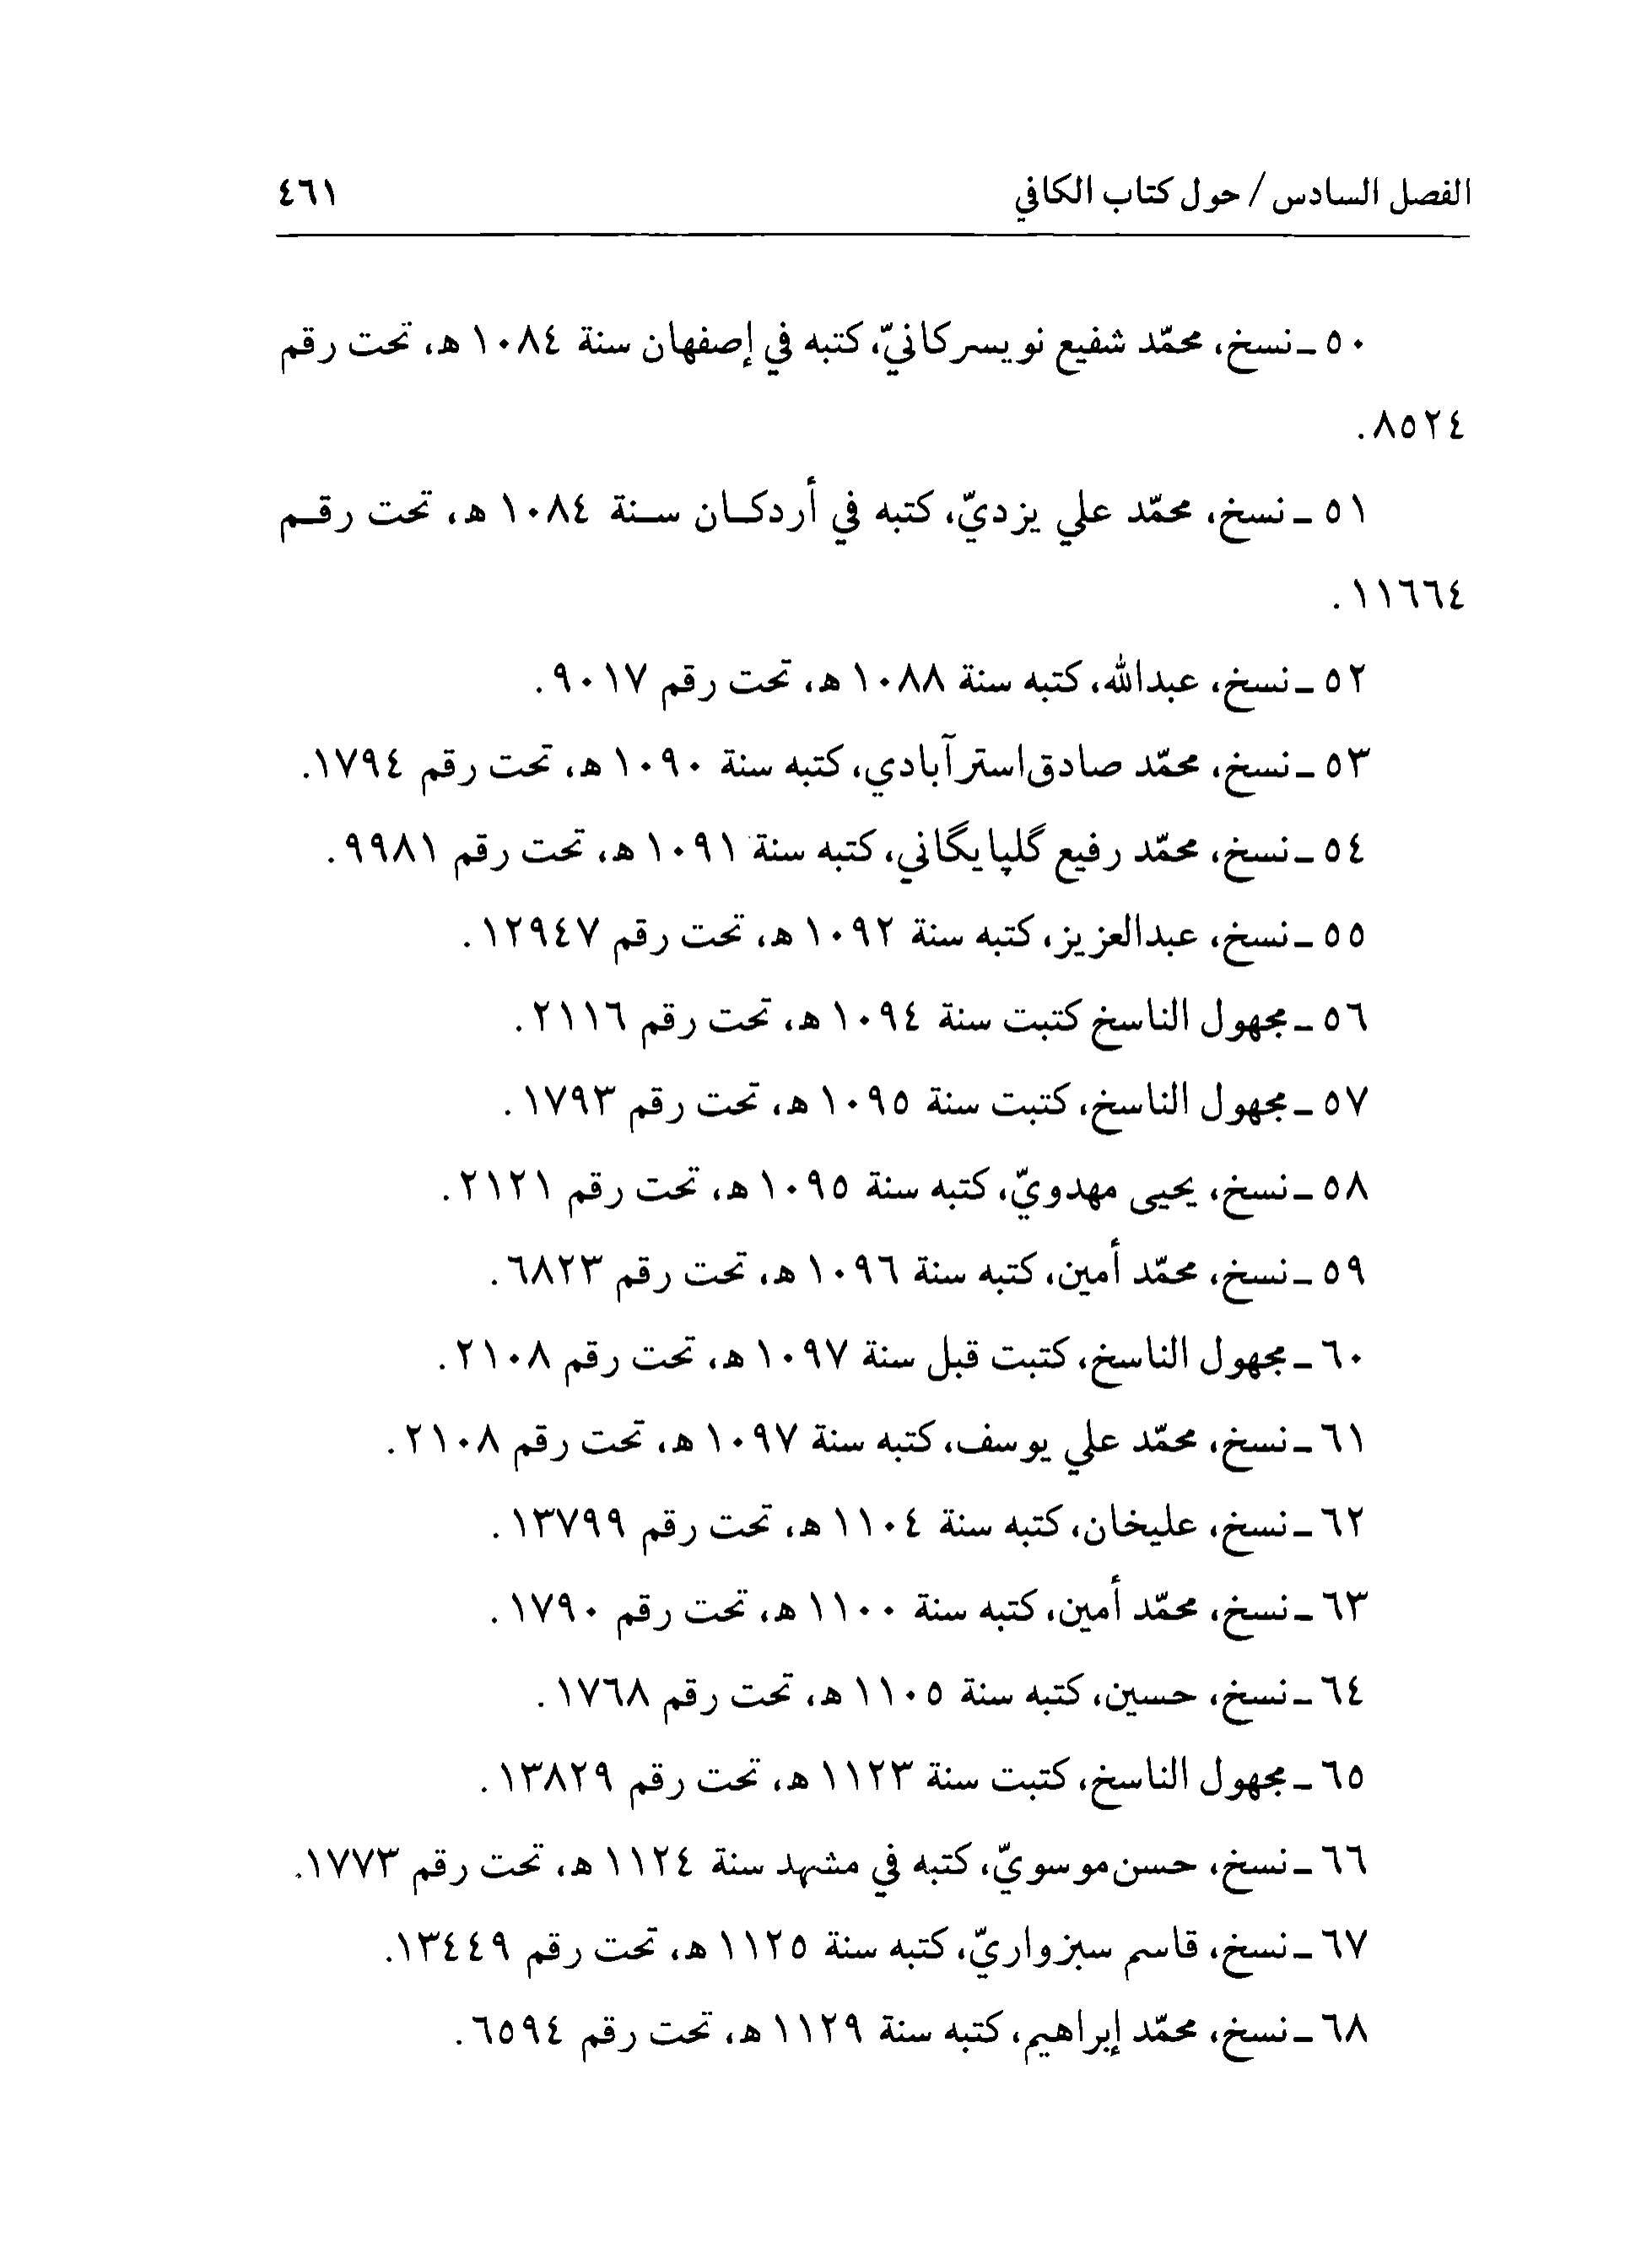 الفصل السادس / حول كتاب الكافي ٤٦١
٥٠ ـ نسخ، محمّد شفيع نويسركانيّ، كتبه في إصفهان سنة ١٠٨٤ ه‍، تحت رقم
٨٥٢٤.
٥١ ـ نسخ، محمّد علي يزديّ، كتبه في أردكان سنة ١٠٨٤ ه‍، تحت رقم
١١٦٦٤.
٥٢ ـ نسخ، عبدالله، كتبه سنة ١٠٨٨ ه‍، تحت رقم ٩٠١٧.
٥٣ ـ نسخ، محمّد صادق استرآبادي، كتبه سنة ١٠٩٠ ه‍، تحت رقم ١٧٩٤.
٥٤ ـ نسخ، محمّد رفيع گلپايگاني، كتبه سنة ١٠٩١ ه‍، تحت رقم ٩٩٨١.
٥٥ ـ نسخ، عبدالعزيز، كتبه سنة ١٠٩٢ ه‍، تحت رقم ١٢٩٤٧.
٥٦ ـ مجهول الناسخ كتبت سنة ١٠٩٤ ه‍، تحت رقم ٢١١٦.
٥٧ ـ مجهول الناسخ، كتبت سنة ١٠٩٥ ه‍، تحت رقم ١٧٩٣.
٥٨ ـ نسخ، يحيى مهدويّ، كتبه سنة ١٠٩٥ ه‍، تحت رقم ٢١٢١.
٥٩ ـ نسخ، محمّد أمين، كتبه سنة ١٠٩٦ ه‍، تحت رقم ٦٨٢٣.
٦٠ ـ مجهول الناسخ، كتبت قبل سنة ١٠٩٧ ه‍، تحت رقم ٢١٠٨.
٦١ ـ نسخ، محمّد علي يوسف، كتبه سنة ١٠٩٧ ه‍، تحت رقم ٢١٠٨.
٦٢ ـ نسخ، عليخان، كتبه سنة ١١٠٤ ه‍، تحت رقم ١٣٧٩٩.
٦٣ ـ نسخ، محمّد أمين، كتبه سنة ١١٠٠ ه‍، تحت رقم ١٧٩٠.
٦٤ ـ نسخ، حسين، كتبه سنة ١١٠٥ ه‍، تحت رقم ١٧٦٨.
٦٥ ـ مجهول الناسخ، كتبت سنة ١١٢٣ ه‍، تحت رقم ١٣٨٢٩.
٦٦ ـ نسخ، حسن موسويّ، كتبه في مشهد سنة ١١٢٤ ه‍، تحت رقم ١٧٧٣.
٦٧ ـ نسخ، قاسم سبزواريّ، كتبه سنة ١١٢٥ ه‍، تحت رقم ١٣٤٤٩.
٦٨ ـ نسخ، محمّد إبراهيم، كتبه سنة ١١٢٩ ه‍، تحت رقم ٦٥٩٤.